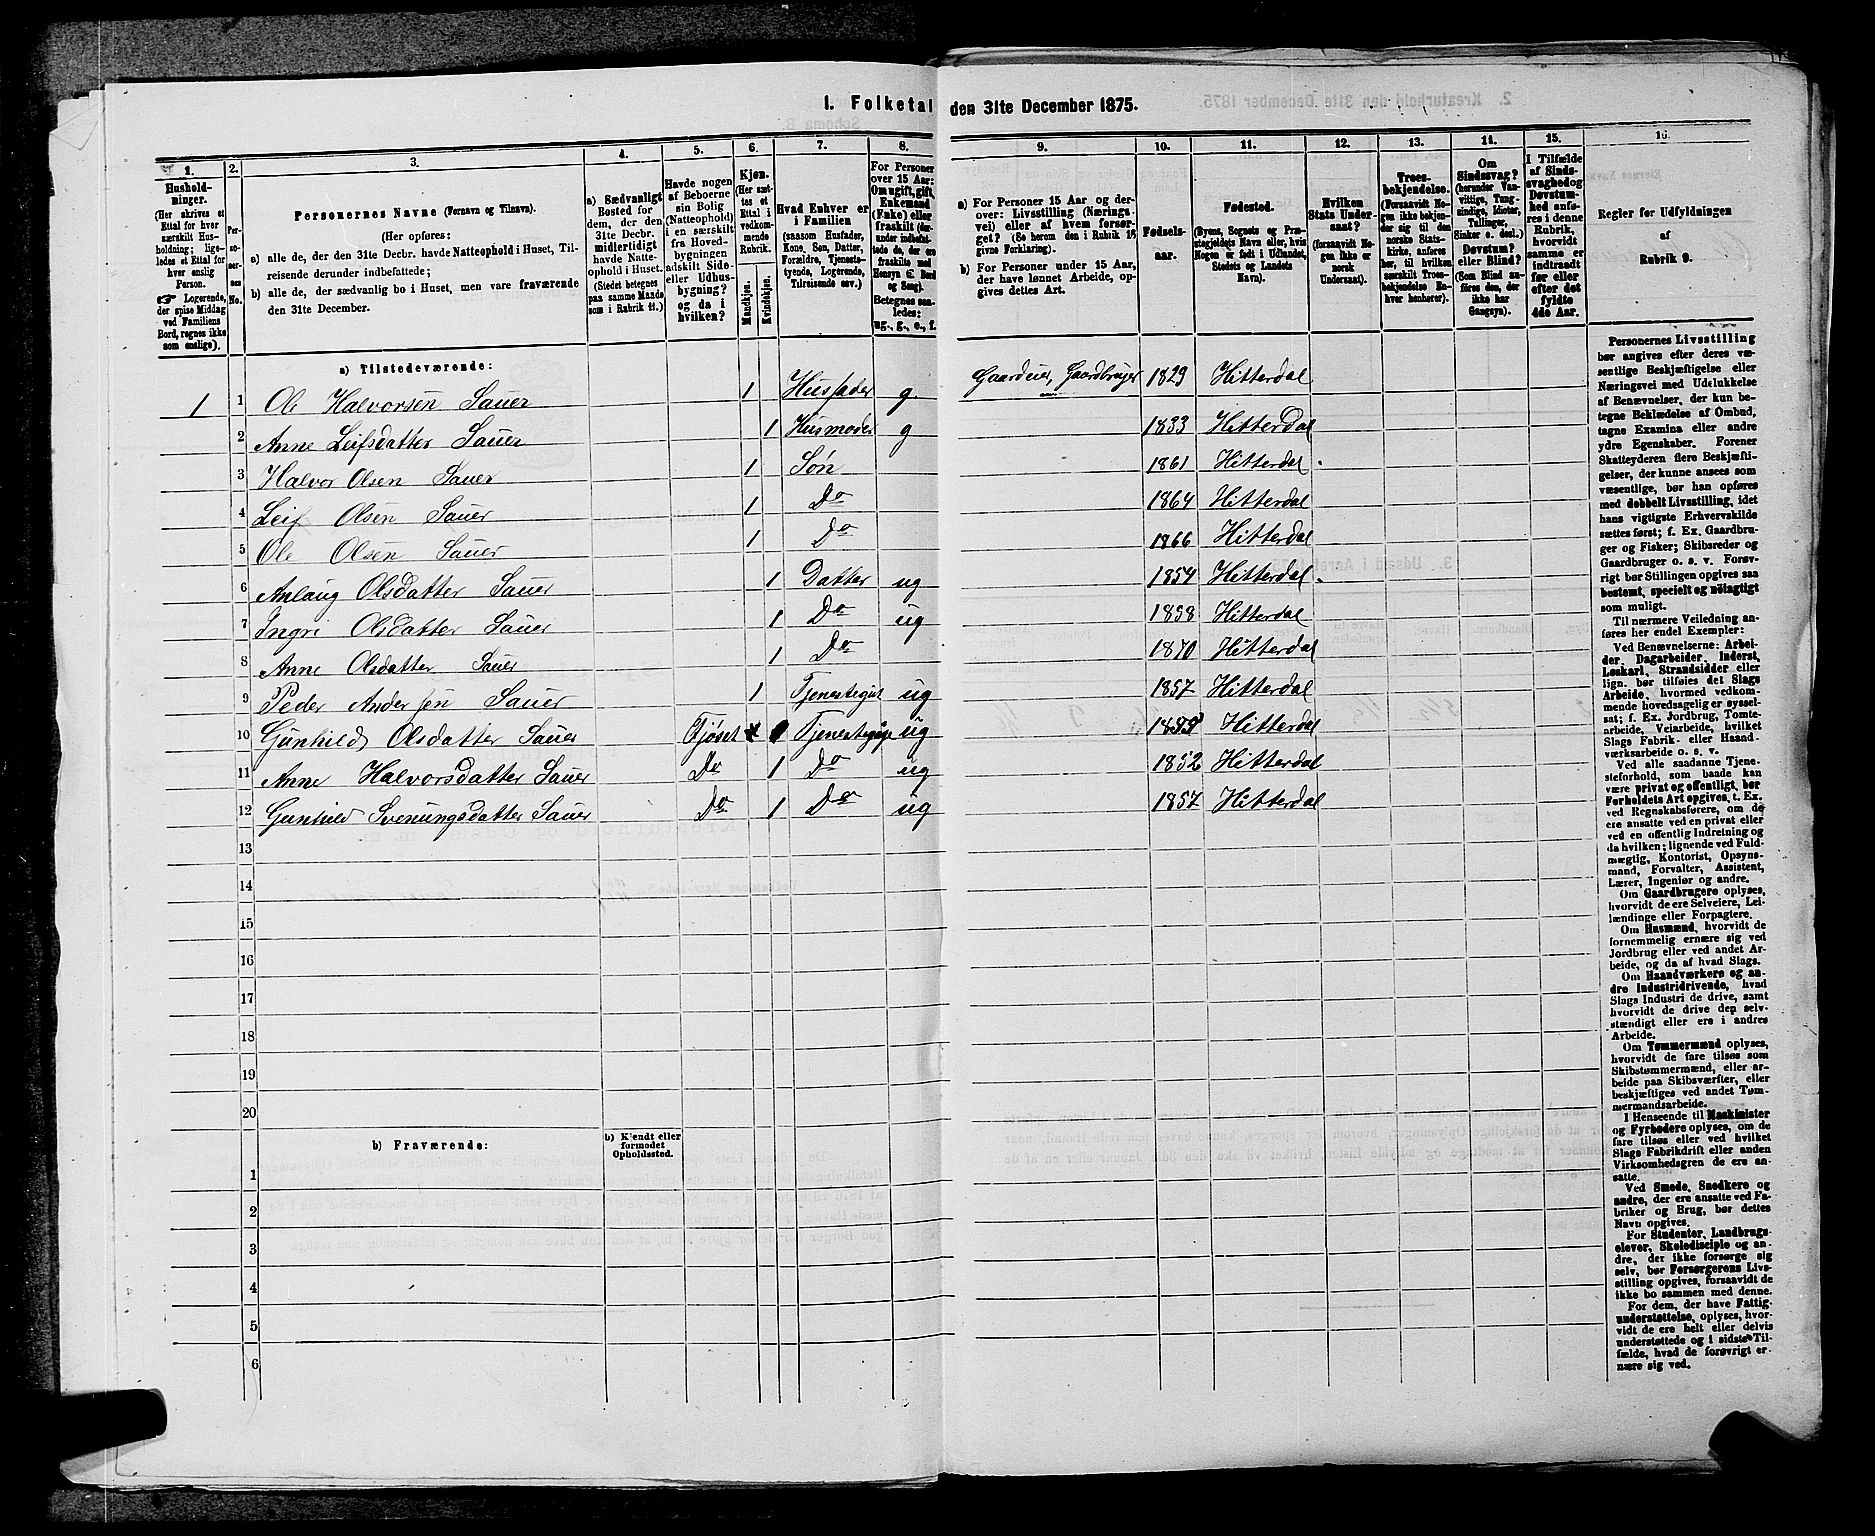 1. Folketal den 31te December 1875.
1. 2. 3. 4. 5. 6. 7. 8. 9. 10. 11. 12. 13. 14. 15. 16.
Hushold-
ninger.
(Her skrives et
Ettal for hver
særskilt Hus-
holdning; lige-
ledes et Ettal for
hver enslig
Person.
☞ Logerende,
der spise Middag
ved Familiens
Bord, regnes ikke
som enslige).
Personernes Navne (Fornavn og Tilnavn).
(Her opføres:
a) alle de, der den 31te Decbr. havde Natteophold i Huset, Til-
reisende derunder indbefattede;
b) alle de, der sædvanlig bo i Huset, men vare fraværende
den 31te December.
a) Sædvanligt
Bosted for
dem, der den
31te Decbr.
midlertidigt
havde Natte-
ophold i Huset.
(Stedet betegnes
paa samme Maade
som i Rubrik 11.)
Havde nogen
af Beboerne
sin Bolig
(Natteophold)
i en særskilt
fra Hoved-
bygningen
adskilt Side-
eller Udhus-
bygning?
og da i
hvilken?
Kjøn.
(Her sæt-
tes et
Ettal i
vedkom-
mende
Rubrik.
Mandkjøn.
Kvindekjøn.
Hvad Enhver er
i Familien
(saasom Husfader,
Kone, Søn, Datter,
Forældre, Tjeneste-
tyende, Logerende,
Tilreisende osv.)
For Personer
over 15 Aar:
Om ugift, gift,
Enkemand
(Enke) eller
fraskilt
Betegnes saa-
ledes:
ug., g., e., f.
a) For Personer 15 Aar og der-
over: Livsstilling (Nærings-
vei) eller af hvem forsør-
get? (Se herom den i Rubrik 16
givne Forklaring).
b) For Personer under 15 Aar,
der have lønnet Arbeide, op-
gives dettes Art.
Fødsels-
aar.
Fødested.
(Byens, Sognets og Præ-
stegjeldets Navn eller, hvis
Nogen er født i Udlandet,
Stedets og Landets
Navn).
Hvilken
Stats Under-
saat?
(forsaavidt No-
gen ikke er
norsk
Undersaat).
Troes-
bekjendelse.
(Forsaavidt No-
gen ikke bekjen-
der sig til den
norske Stats-
kirke, anføres
her, til hvilken
særskilt Troes-
bekjendelse En-
hver henhører).
Om
Sindssvag?
(herunder Van-
vittige, Tung-
sindige, Idioter,
Tullinger,
Sinker o. desl.)
Døvstum?
eller Blind?
(Som Blind an-
føres den, der
ikke har
Gangsyn).
I Tilfælde
af Sinds-
svaghed og
Døvstum-
hed anfø-
res i denne
Rubrik,
hvorvidt
samme er
indtraadt
før eller
efter det
fyldte
4de Aar.
Regler for Udfyldningen
af
Rubrik 9.
a) Tilstedeværende:
1 1 Ole Halvorsen Sauer 1 Husfader g. Gaardeier, Gaardbruger 1829 Hitterdal
2 Anne Leifsdatter Sauer 1 Husmoder g 1833 Hitterdal
3 Halvor Olsen Sauer 1 Søn 1861 Hitterdal
4 Leif Olsen Sauer 1 Do 1864 Hitterdal
5 Ole Olsen Sauer 1 Do 1866 Hitterdal
6 Anlaug Olsdatter Sauer 1 Datter ug 1854 Hitterdal
7 Ingri Olsdatter Sauer 1 Do ug 1858 Hitterdal
8 Anne Olsdatter Sauer 1 Do 1870 Hitterdal
9 Peder Andersen Sauer 1 Tjenestegut ug 1857 Hitterdal
10 Gunhild Olsdatter Sauer Fjøset 1 Tjenestepige ug Hitterdal
11 Anne Halvorsdatter Sauer Do 1 Do ug 1852 Hitterdal
12 Gunhild Svenungsdatter Sauer Do 1 Do ug 1857 Hitterdal
13
14
15
16
17
18
19
20
b) Fraværende: b) Kjendt eller
formodet
Opholdssted.
1
2
3
4
5
6
Personernes Livsstilling
bør angives efter deres væ-
sentlige Beskjæftigelse eller
Næringsvei med Udelukkelse
af Benævnelser, der kun be-
tegne Beklædelse af Ombud,
tagne Examina eller andre
ydre Egenskaber. Forener
Skatteyderen flere Beskjæfti-
gelser, der kunne ansees som
væsentlige, bør han opføres
med dobbelt Livsstilling, idet
hans vigtigste Erhvervskilde
sættes først; f. Ex. Gaardbru-
ger og Fisker; Skibsreder og
Gaardbruger o. s. v. Forøv-
rigt bør Stillingen opgives saa
bestemt, specielt og nøiagtigt
som muligt.
Til nærmere Veiledning an-
føres her endel Exempler:
Ved Benævnelserne: Arbei-
der, Dagarbeider, Inderst,
Løskarl, Strandsidder eller
lign. bør tilføies det Slags
Arbeide, hvormed vedkom-
mende hovedsagelig er syssel-
sat; f. Ex. Jordbrug, Tomte-
arbeide, Veiarbeide, hvilket
Slags Fabrik- eller Haand-
værksarbeide o. s. v.
Ved alle saadanne Tjene-
steforhold, som baade kan
være privat og offentligt, bør
Forholdets Art opgives, t. Ex.
ved Regnskabsførere, om de
ere ansatte ved en privat eller
ved en offentlig Indretning og
da hvilken; lignende ved Fuld-
mægtig, Kontorist, Opsyns-
mand, Forvalter, Assistent,
Lærer, Ingeniør og andre.
Om Gaardbrugere oplyses,
hvorvidt de ere Selveiere, Lei-
lændinge eller Forpagtere.
Om Husmænd, hvorvidt de
fornemmelig ernære sig ved
Jordbrug eller ved andet Ar-
beide, og da af hvad Slags.
Om Haandværkere og an-
dre Industridrivende, hvad
Slags Industri de drive, samt
hvorvidt de drive den selv-
stændigt eller ere i andres
Arbeide.
Om Tømmermænd oplyses,
hvorvidt de fare tilsøs som
Skibstømmermænd, eller ar-
beide paa Skibsværfter, eller
beskjæftiges ved andet Tøm-
mermandsarbeide.
I Henseende til Maskinister
og Fyrbødere oplyses, om de
fare tilsøs eller ved hvilket
Slags Fabrikdrift eller anden
Virksomhedsgren de ere an-
satte.
Ved Smede, Snedkere og
andre, der ere ansatte ved Fa-
briker og Brug, bør dettes
Navn opgives.
For Studenter, Landbrugs-
elever, Skoledisciple og an-
dre, der ikke forsørge sig
selv, bør Forsørgerens Livs-
stilling opgives, forsaavidt de
ikke bo sammen med denne.
For dem, der have Fattig-
understøttelse, oplyses, hvor-
vidt de ere helt eller delvis
understøttede og i sidste Til-
fælde, hvad de forøvrigt er-
nære sig ved.